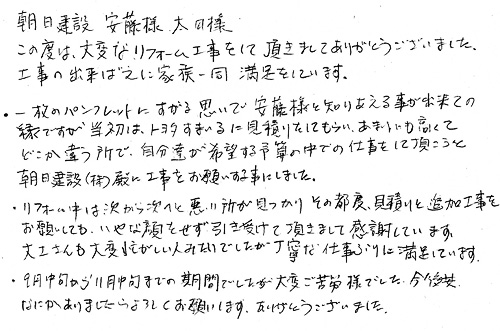 朝日建設 安藤様 太田様
この度は、大変なリフォーム工事をして頂きましてありがとうございました。
工事の出来ばえに家族一同 満足をしています。
・一枚のパンフレットにすがる思いで安藤様と知りあえる事が出来ての
縁ですが当初は、トヨタすまいるに見積りをしてもらい、あまりにも高くて
どこか違う所で、自分達が希望する予算の中での仕事をして頂こうと
朝日建設(株)殿に工事をお願いする事にしました。
・リフォーム中は次から次へと悪い所が見つかり その都度、見積りと追加工事を
お願いしても、いやな顔をせず引き受けて頂きまして感謝しています
大工さんも大変忙がしい人みたいでしたが丁寧な仕事ぶりに満足しています。
・9月中旬から11月中旬までの期間でしたが大変ご苦労様でした。今後共
なにかありましたらよろしくお願いします。ありがとうございました。